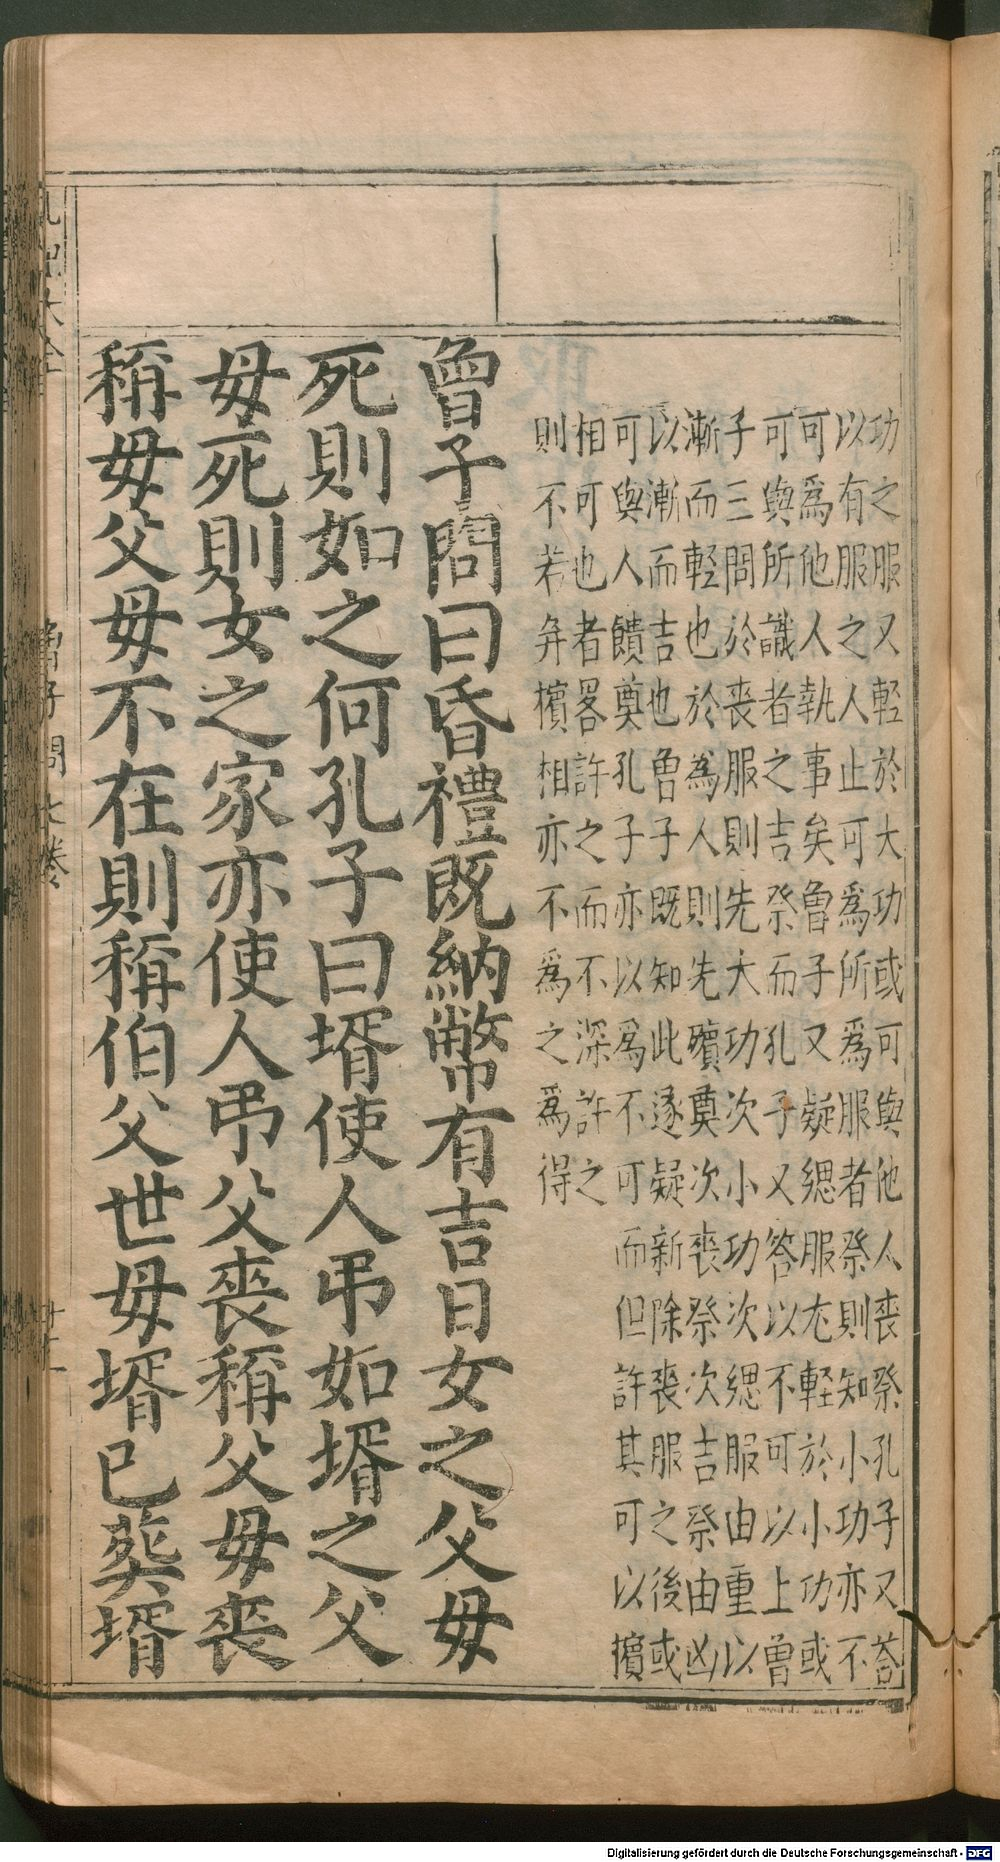 功之服又輕於大功或可與他人喪祭孔子又荅
以有服之人止可爲所爲服者祭則知小功亦不
可爲他人執事矣曾子又疑緦服尤輕於小功或
可與所識者之吉祭而孔子又答以不可以上曾
子三問於喪服則先大功次小功次緦服由重以
漸而輕也於爲人則先殯奠次喪祭次吉祭由凶
以漸而吉也曾子既知此遂疑新除喪服之後或
可與人饋奠孔子亦以爲不可而但許其可以擯
相可也者畧許之而不深許之
則不若并擯相亦不爲之爲得
曾子問曰昏禮既納幣有吉日女之父母
死則如之何孔子曰壻使人弔如壻之父
母死則女之家亦使人弔父喪稱父母喪
稱母父母不在則稱伯父世母壻已葬壻
曾子問
Digitalisierung gefördert durch die Deutsche Forschungsgemeinschaft - DFG